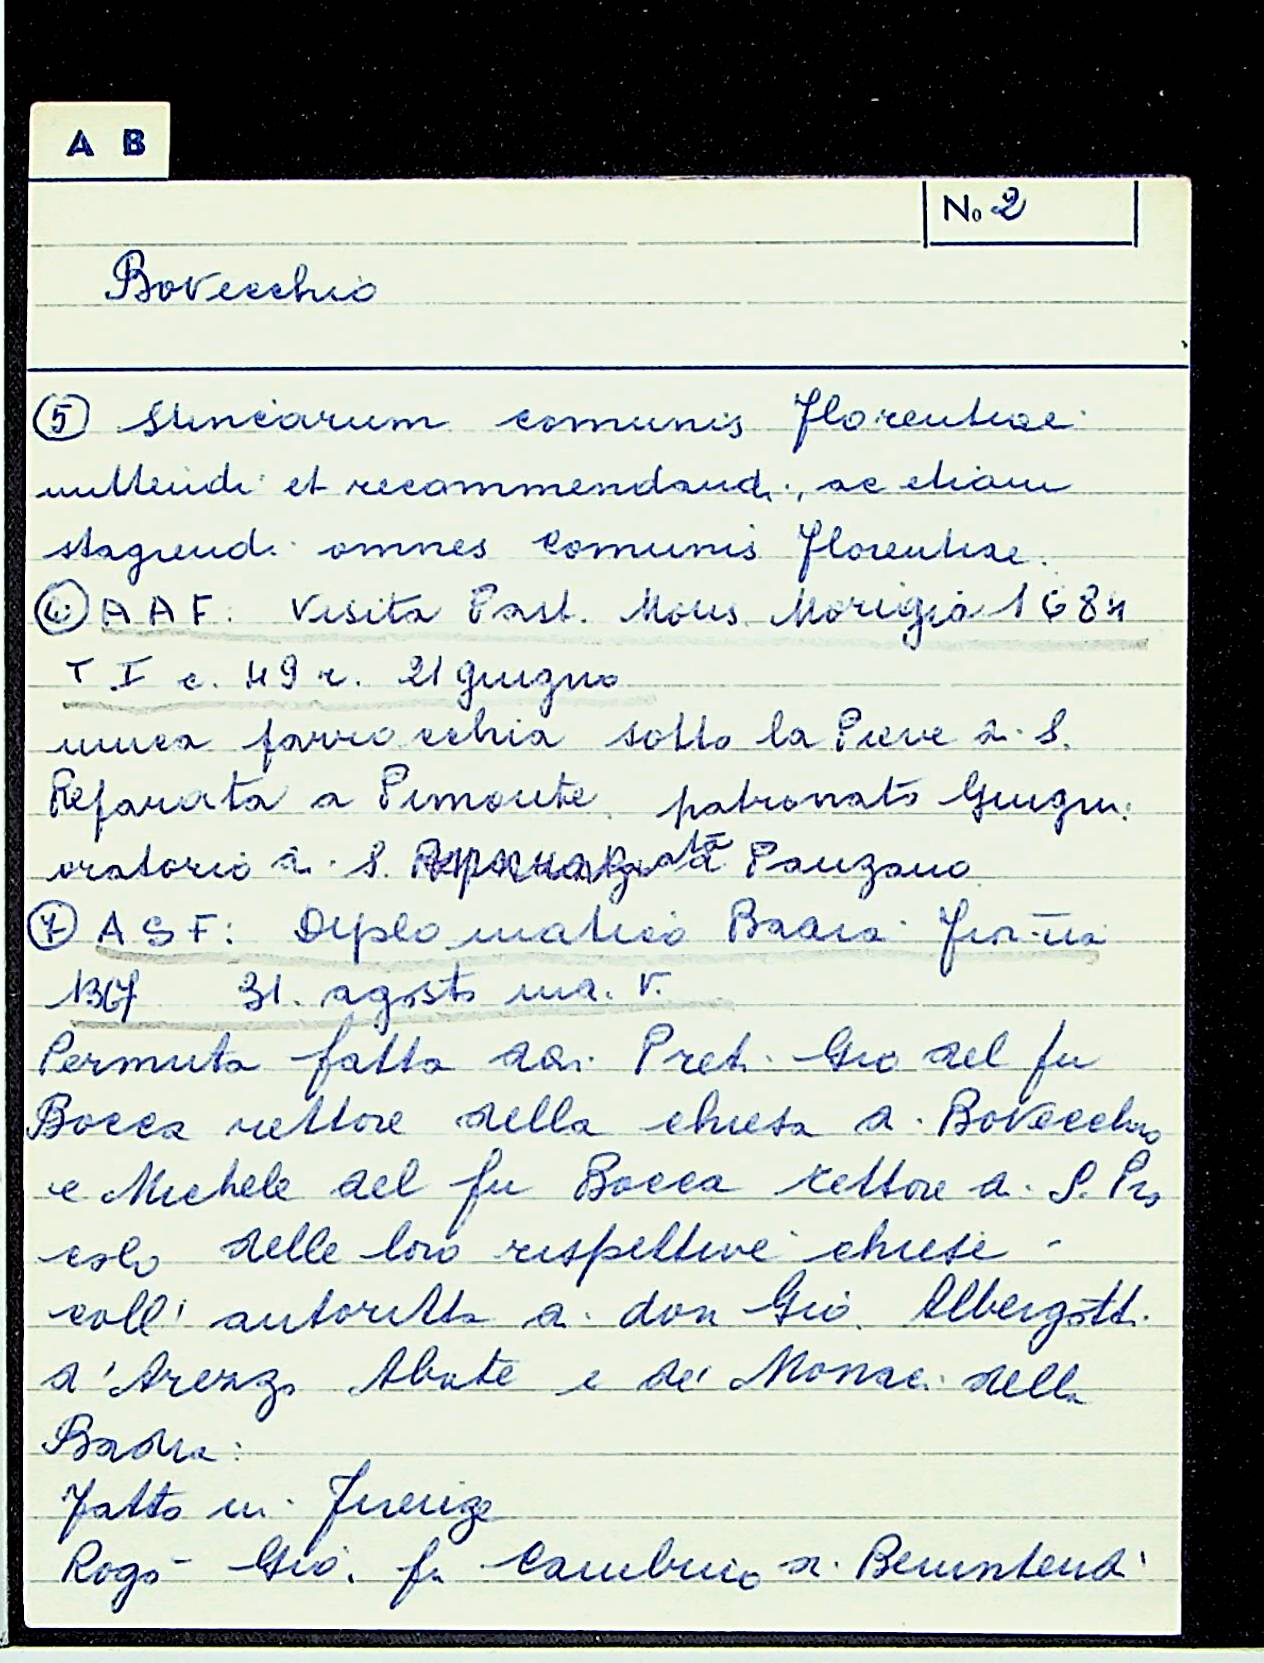 A B
No 2
Bovecchio
⑤ stincarum comunis Florentiae
mittendi et recommendandi, ac etiam
stagiendi omnes comunis Florentiae.
A A F: Visita Past. Mons. Morigia 1684
T I c. 49 r. 21 giugno
unica parrocchia sotto la Pieve di S.
Reparata a Pimonte. patronato Giugni.
oratorio di S. a Panzano
⑦ A S F: Diplomatico Badia Fior-na
1367 31. agosto ma. V.
Permuta fatta dai Preti Gio del fu
Bocca rettore della chiesa di Bovecchio
e Michele del fu Bocca rettore di S. Pro
colo delle loro rispettive chiese -
coll' autorità di don Gio. Albergotti
d'Arezzo Abate e de' Monaci della
Badia:
Fatto in Firenze
Rogò Gio. fu Cambino di Benintendi